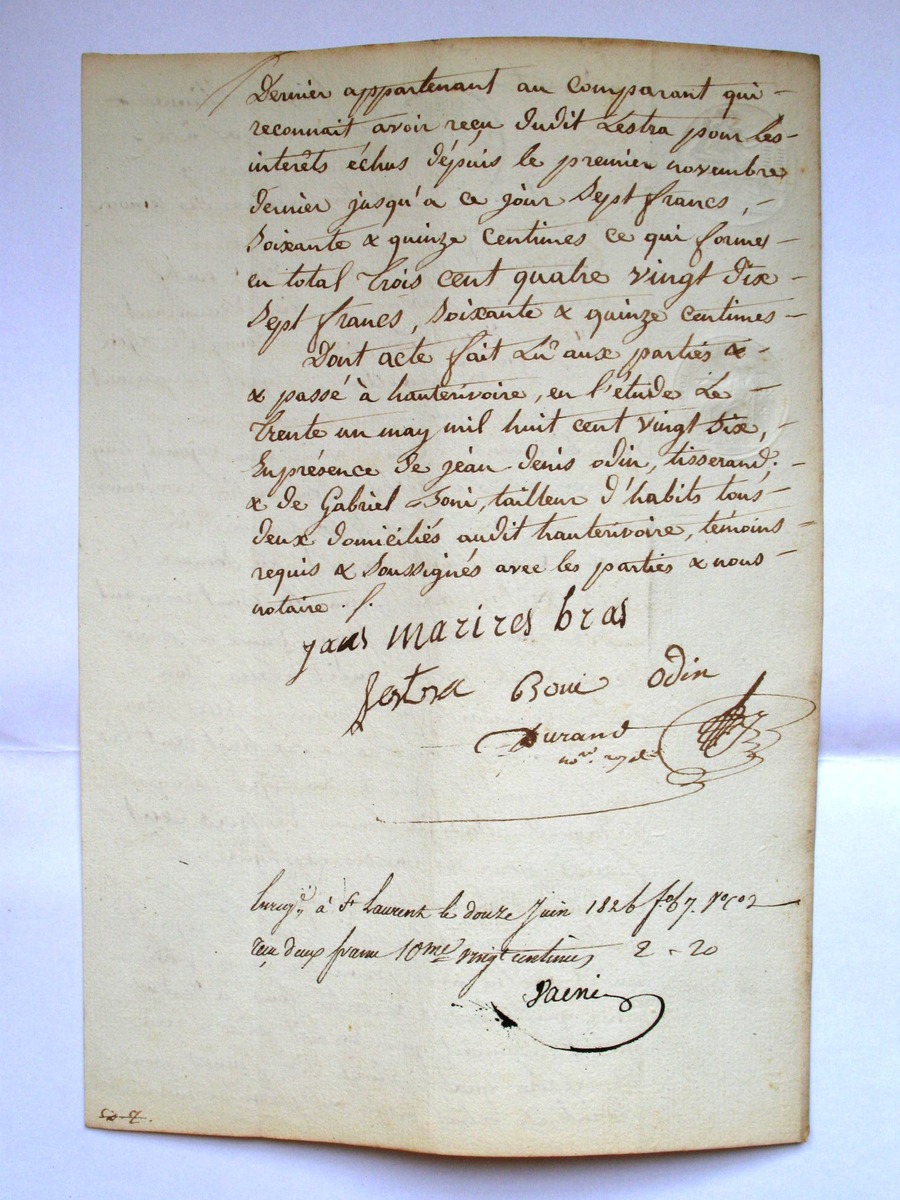 Dernier appartenant au comparant qui -
reconnait avoir reçu dudit Lestra pour les -
interêts échus dépuis le premier novembre
dernier jusqu'a ce jour Sept francs, -
Soixante & quinze centimes ce qui forme -
en total trois cent quatre vingt dix -
Sept francs, Soixante & quinze centimes -
Dont acte fait Lu aux parties & -
& passé à hauterivoire, en l'étude Le -
trente un may mil huit cent vingt Six, -
En présence de jéan denis odin, tisserand, -
& de Gabriel Boni, tailleur d'habits tous -
deux domiciliés audit hauterivoire, témoins -
requis & Soussignés avec les parties & nous -
notaire ./.
marires bras
Lestra Boni Odin
Durand
nore. royal
Enregé. à St Laurent le douze Juin 1826 fo. 67. Vo Co 2
reçu deux francs 10me vingt centimes 2 - 20